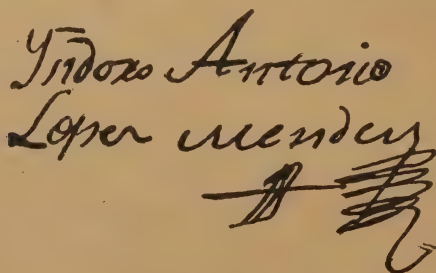 Ysidoro Antonio
Lopez Mendez